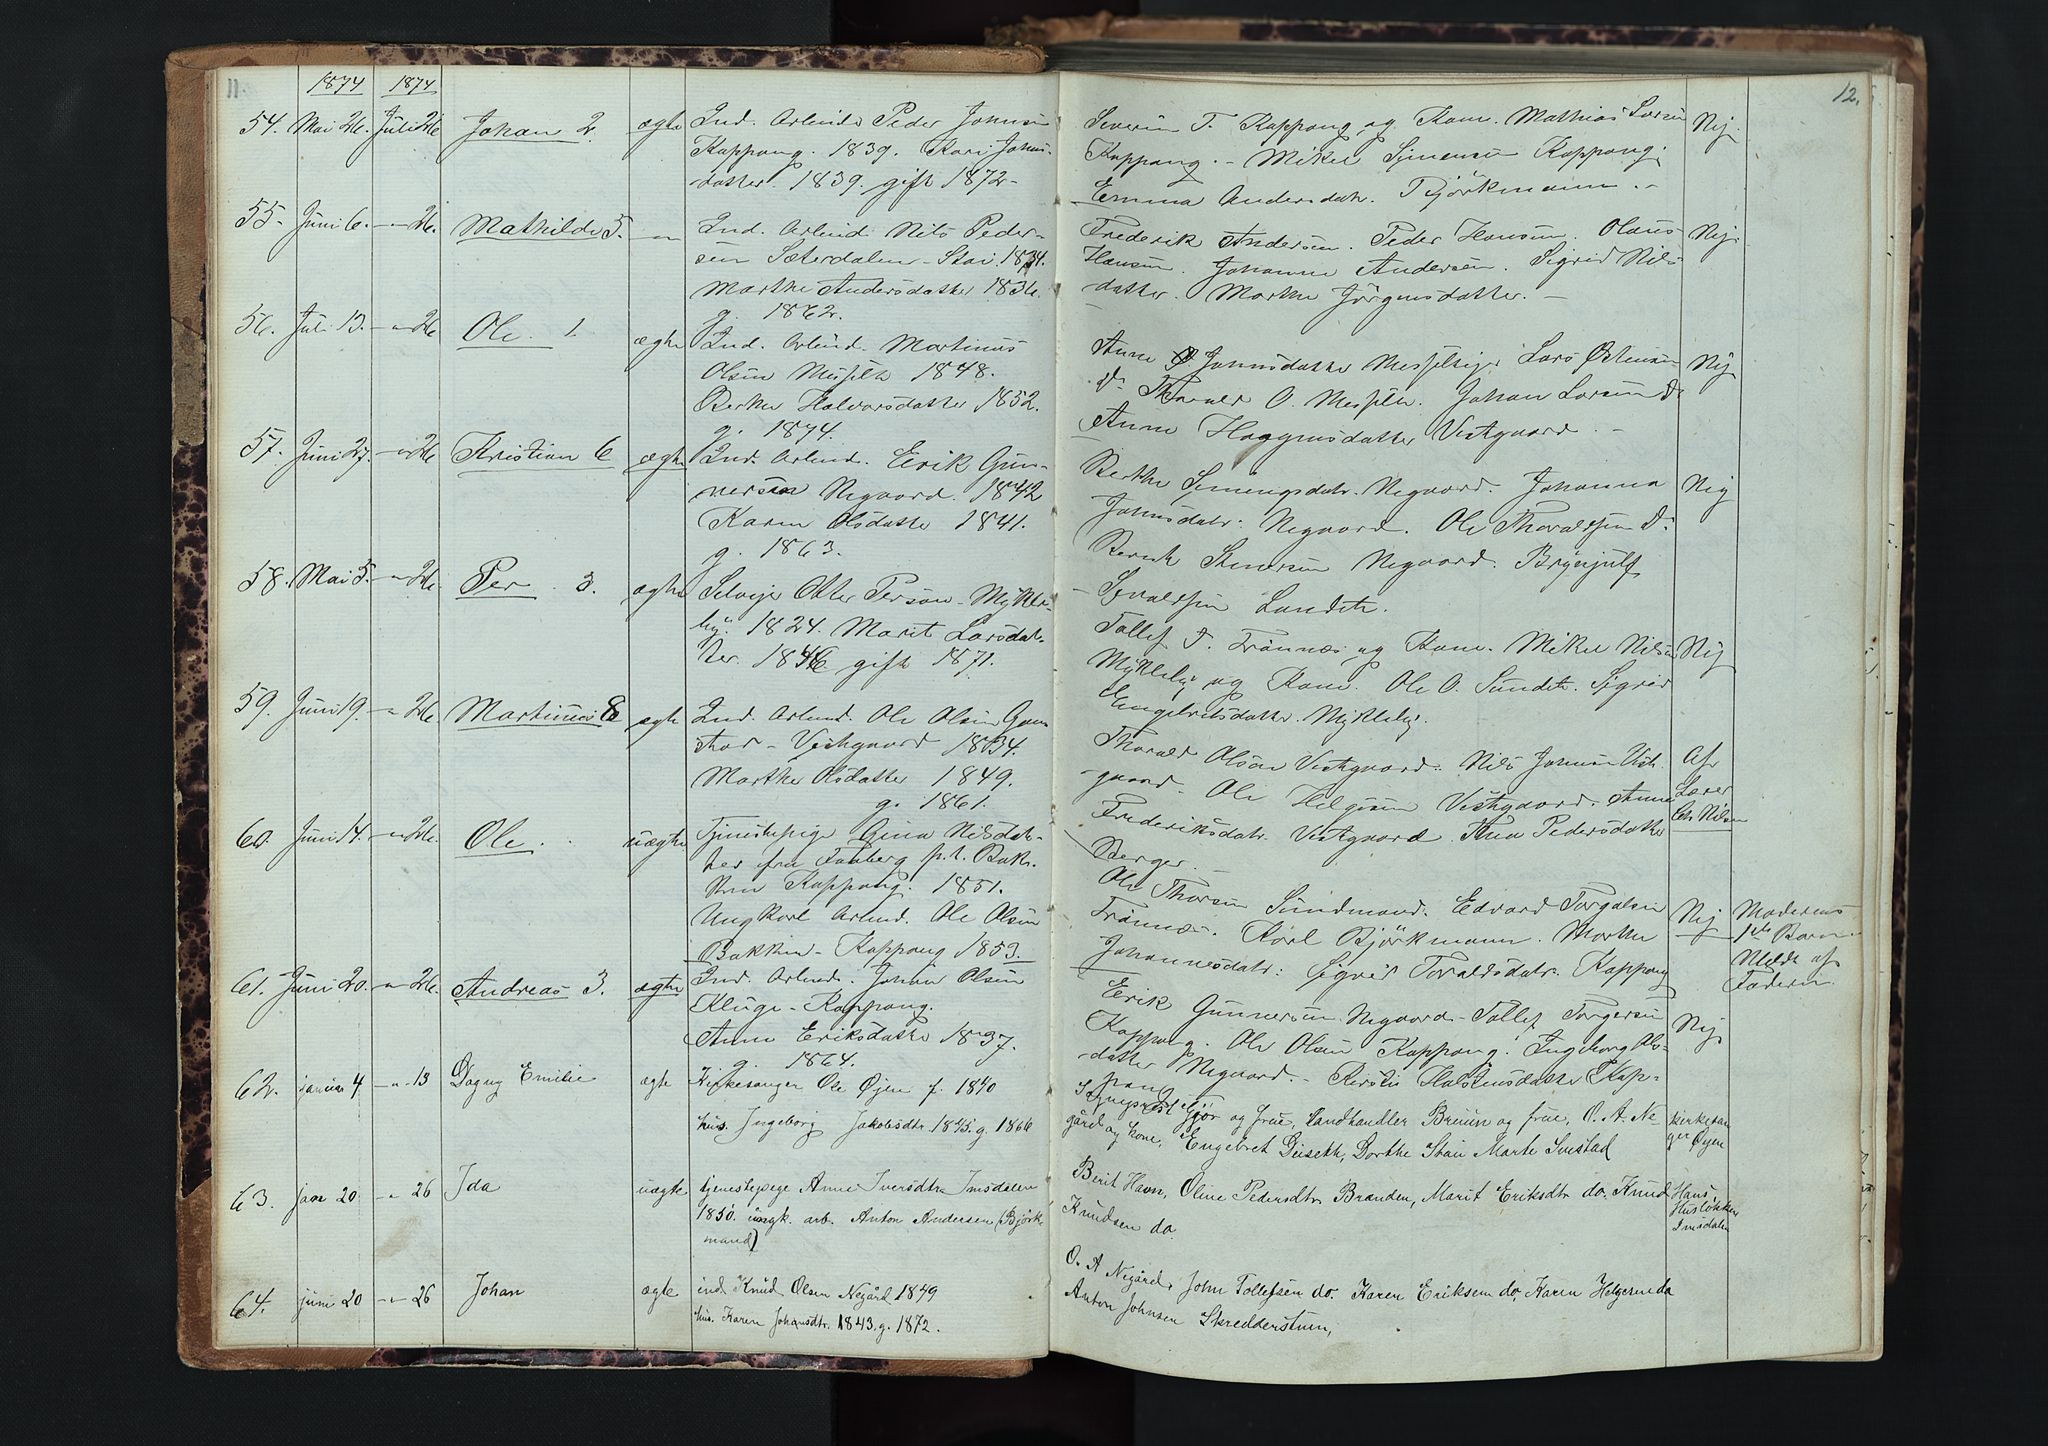 11.
1874 1874
54. Mai 26. Juli 26 Johan 2. ægte Ind. Arbeider Peder Johnsen
Kappang. 1839. Kari Johns-
datter. 1839. gift 1872-
55. Juni 6. - " - 26. Mathilde 5. - " - Ind. Arbeid. Nils Peder-
sen Sæterdalen - Stai. 1834.
Marthe Andersdatter 1836.
g. 1862.
56. Juli 13. - " - 26 Ole. 1 ægte Ind. Arbeid. Martinus
Olsen Messelt 1848.
Berthe Halvorsdatter 1852.
g. 1874.
57. Juni 27. - " - 26 Kristian 6 ægte Ind. Arbeid. Eerik Gun-
nersen Negaard. 1842
Karen Olsdatter 1841.
g. 1863.
58. Mai 5. - " - 26. Per. 3. ægte Selveier Otter Person - Mykle-
by. 1824. Marit Larsdat-
ter. 1846 gift 1871.
59. Juni 19. - " - 26 Martinus 8 ægte Ind. Arbeid. Ole Olsen
- Vestgaard 1834.
Marthe Olsdatter 1849.
g. 1861.
60. Juni 14. - " - 26. Ole. uægte Tjenestepige Gina Nilsdat-
ter fra Faaberg p.t. Bak-
ken Kappang. 1851.
Ungkarl Arbeid. Ole Olsen
Bakken - Kappang 1853.
61. Juni 20. - " - 26. Andreas 3. ægte Ind. Arbeid. Johan Olsen
Kluge - Kappang.
Anne Eriksdatter 1837.
g. 1864.
62. januar 4 - " - 13 Dagny Emilie ægte Kirkesanger Ole Øjen f. 1840
hus. Ingeborg Jakobsdtr. 1843. g. 1866
63. jan 20. - " - 26 Ida uægte tjenestepige Anne Iversdtr Imsdalen
1850. ungk. arb. Anton Andersen (Björk-
mand)
64. juni 20 - " - 26 Johan ægte ind. Knud Olsen Negård 1849
hus. Karen Johansdtr. 1843. g. 1872.
12.
Severin T. Kappang og Kone. Mathias Larsen Nej.
Kappang. - Mikel Simensen Kappang.
Emma Andersdatr. Björkmann. -
Frederik Andersen. Peder Hansen, Olaus Nej.
Hansen. Johanne Andersen. Sigrid Nils-
datter. Marthe Jörgensdatter. -
Anne Johnsdatter Messeltsige Lars Østensen Nej
do Thorvald O. Messelt. Johan Larsen Do
Anne Haagensdatter Vestgaard. -
Berthe Simensdatr. Negaard. Johanna Nej
Johnsdatr. Negaard. Ole Thoraldsen Do.
Bernt Stenersen Negaard. Brynjulf
Lundete.
Tollef T. Trönnes og Kone. Mikel Nilsen Nej
Mykleby og Kone. Ole O. Sundet. Sigrid
Engebretsdatter. Mykleby.
Thorvald Olsen Vestgaard. Nils Johnsen Vest- Af
gaard. Ole Helgesen Vestgaard. Anne Lærer
Frederiksdatr. Vestgaard. Ana Pedersdatter Chr Nilsen
Berger.
Ole Thorsen Sundmand. Edvard Torgalsen Nej Moderens
Trönnes. Karl Björkmann. Marthe 1ste Barn.
Johannesdatr. Sigrid Toraldsdatr. Kappang Meldt af
Faderen.
Eerik Gunnersen Negaard - Tollef Torgersen Nej
Kappang. Ole Olsen Kappang. Ingeborg Ols-
datter Negaard. - Kersti Halstensdatter Kap-
pang
Gjør og frue, Landhandler Bruun og frue, O. A. Ne- kirkesan-
gård og kone, Engebret Geiseth, Dorthe Stai Marte Imstad ger Øjen
Berit Havn, Oline Pedersdtr Brænden, Marit Eriksdtr do. Knud Hans
Knudsen do. Husløkken
Imsdalen
O. A Negård, John Tollefsen do. Karen Eriksen do, Karen Helgesen do
Anton Johnsen Skredderstuen,